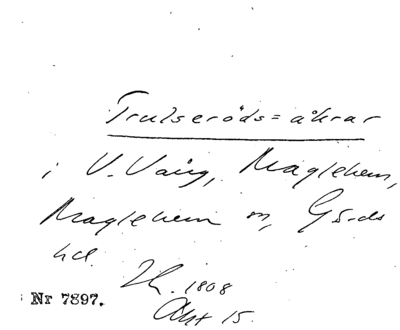 Trulseröds=åkrar
i V. Vång, Maglehem,
Maglehem sn, Gä.ds
hd.
Lh. 1808
Akt 15.
Nr 7897.